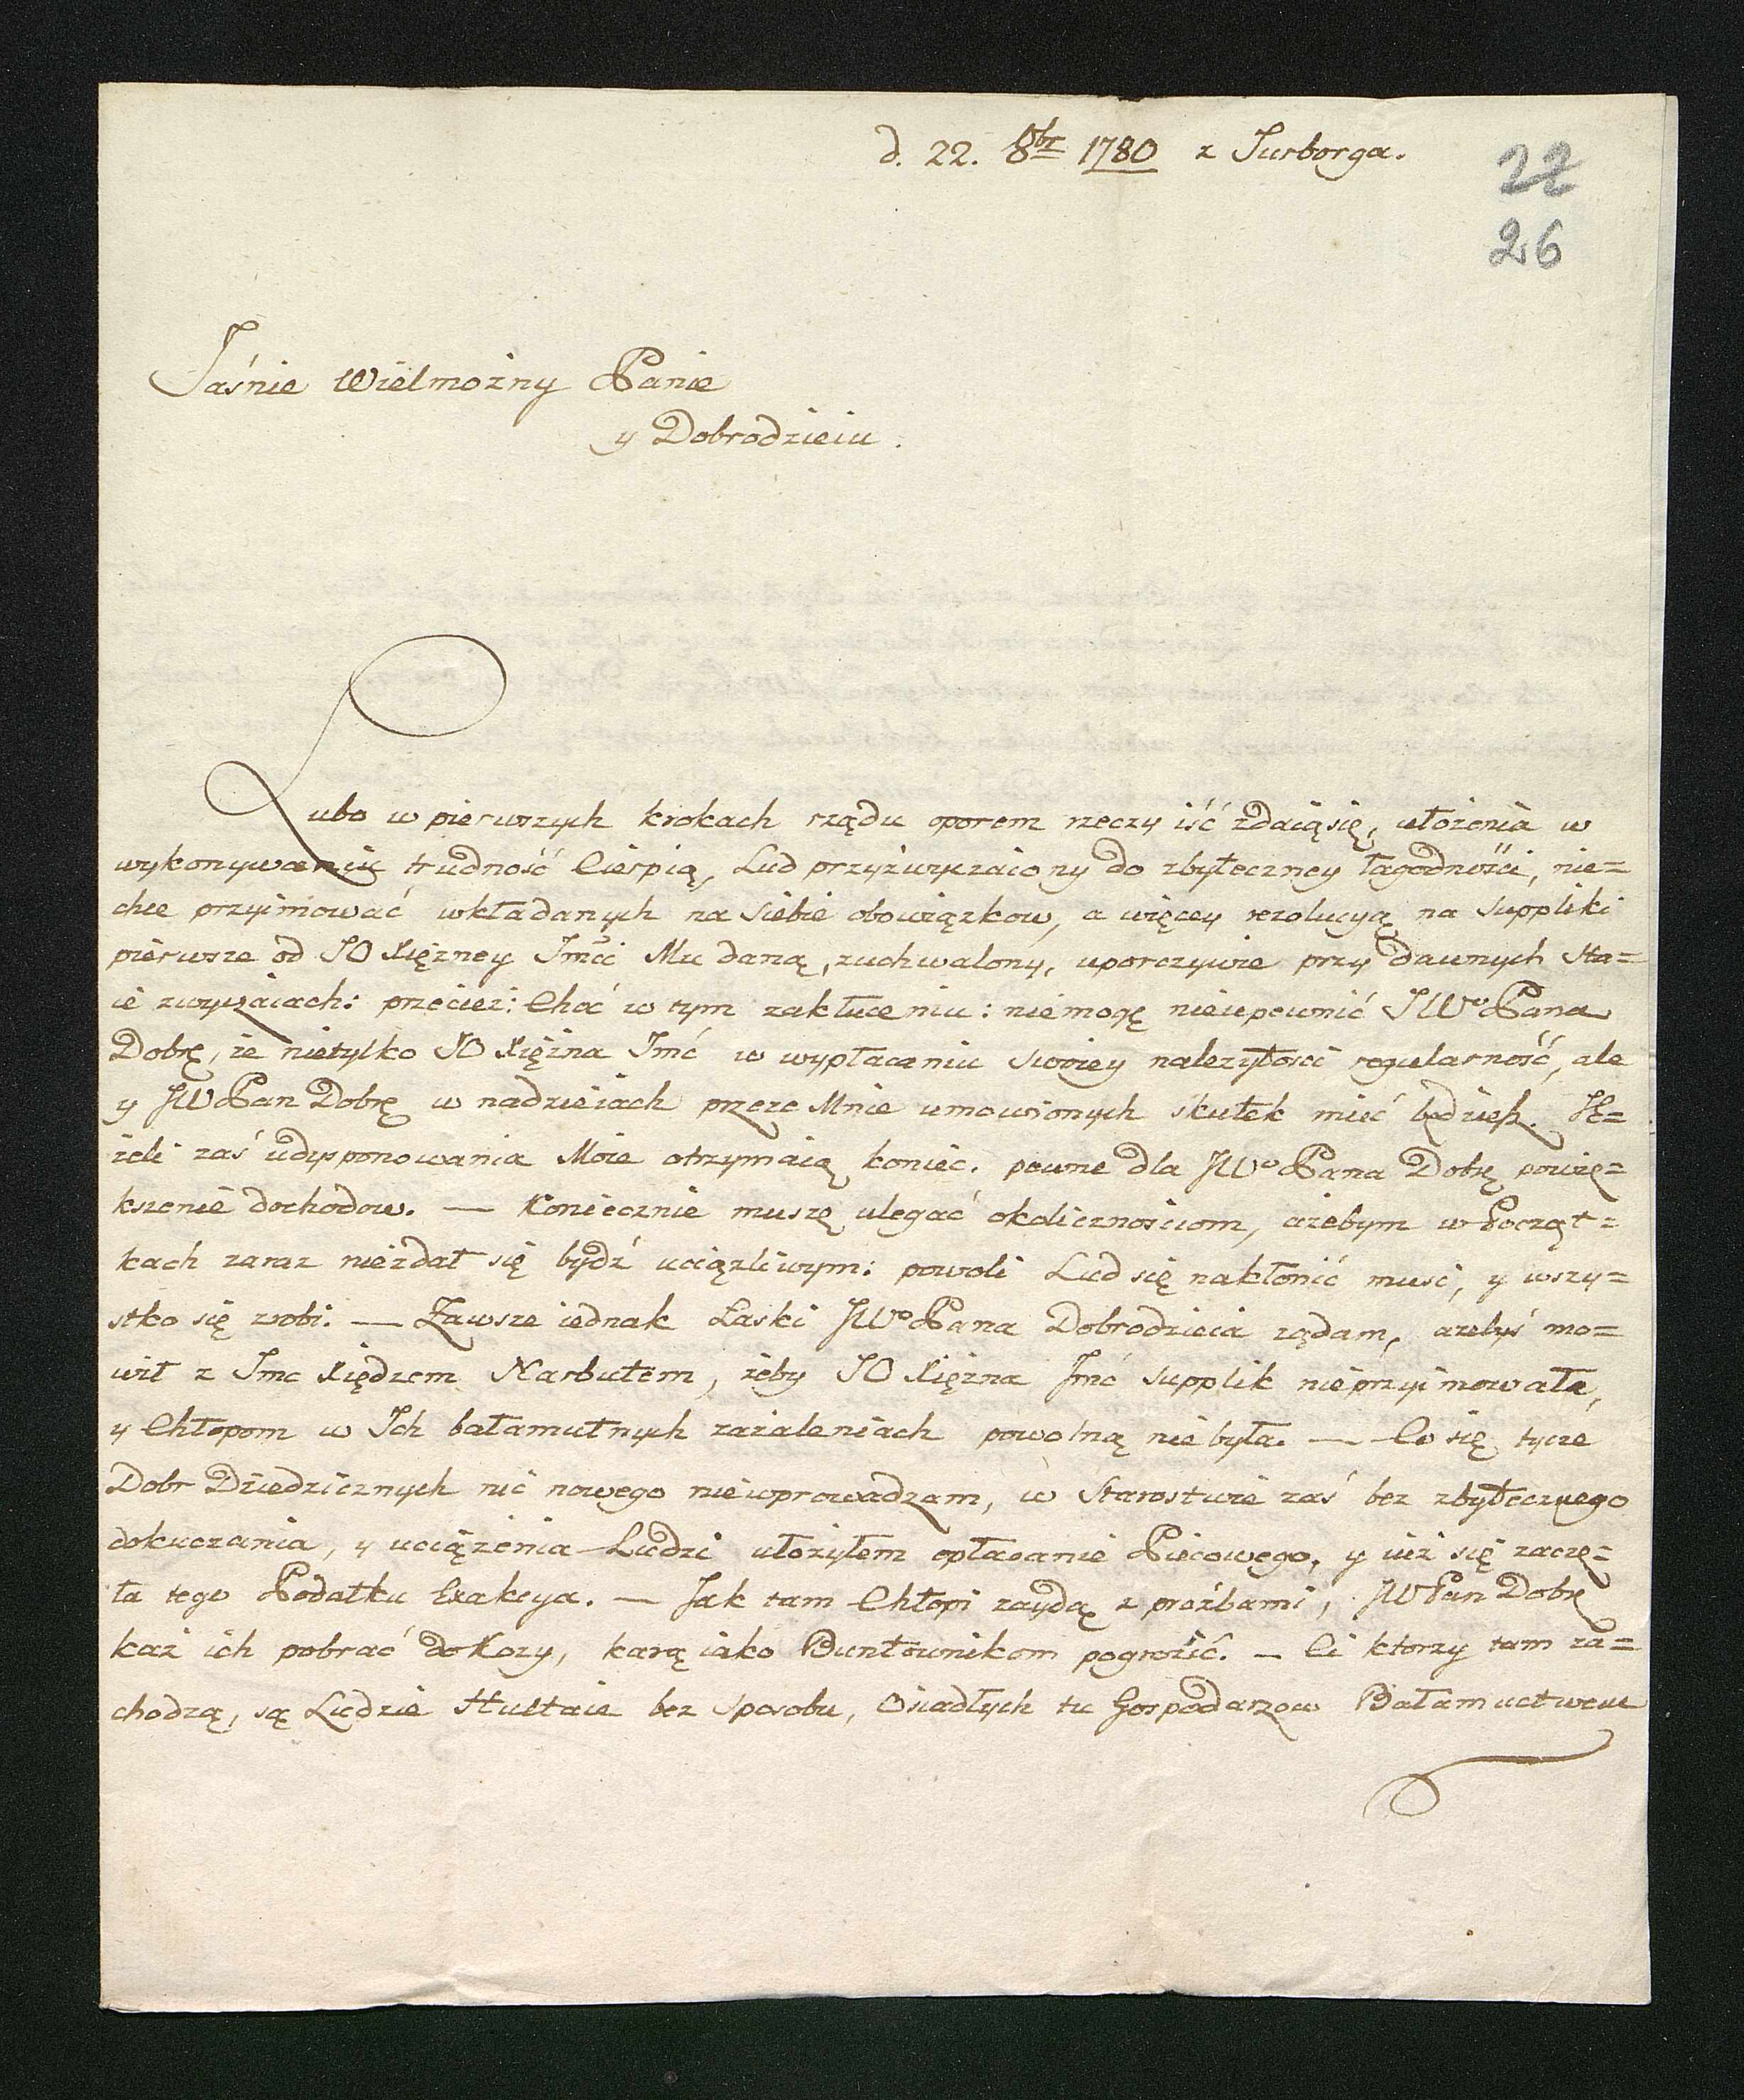 d. 22. 8br 1780 z Jurborga.
22
26
Jaśnie Wielmożny Panie
y Dobrodzieiu.
Lubo w pierwszych krokach rządu oporem rzeczy iść zdaią się, ułożenia w
wykonywaniu trudność Cierpią, Lud przyzwyczaiony do zbyteczney łagodności, nie=
chce przyimować wkładanych na Siebie obowiązkow, a więcey rezolucyą na Suppliki
pierwsze od JO Xiężney Jmći Mu daną, zuchwalony, uporczywie przy dawnych Sta=
ie zwyczaiach: przecież: Choć w tym zakłuceniu: niemogę nieupewnić JWo Pana
Dobrę, że nietylko JO Xiężna Jmć w wypłacaniu Swoiey należytości regularność, ale
y JWPan Dobrę w nadzieiach przeze Mnie umowionych skutek mieć będziesz. Je=
żeli zaś udysponowania Moie otrzymaią koniec. pewne dla JWo Pana Dobrę powię=
kszenie dochodow. — Koniecznie muszę ulegać okolicznościom, ażebym w Począt=
kach zaraz niezdał się bydź uciążliwym: powoli Lud się nakłonić musi, y wszy=
stko się zrobi. — Zawsze iednak Łaski JWo Pana Dobrodzieia żądam, ażebyś mo=
wił z Jmc Xiędzem Narbutem, żeby JO Xiężna Jmć Supplik nieprzyimowała,
y Chłopom w Ich bałamutnych zażaleniach powolną nie była. — Co się tycze
Dobr Dziedzicznych nic nowego niewprowadzam, w Starostwie zaś bez zbytecznego
dokuczania, y uciążenia Ludzi ułożyłem opłacanie Piecowego, y iuż się zaczę=
ła tego Podatku Exakcya. — Jak tam Chłopi zaydą z proźbami, JWPan Dobrę
każ ich pobrać do Kozy, karą iako Buntownikom pogrozić. — Ci ktorzy tam za=
chodzą, są Ludzie Hultaie bez Sposobu, Osiadłych tu Gospodarzow Bałamuctwem